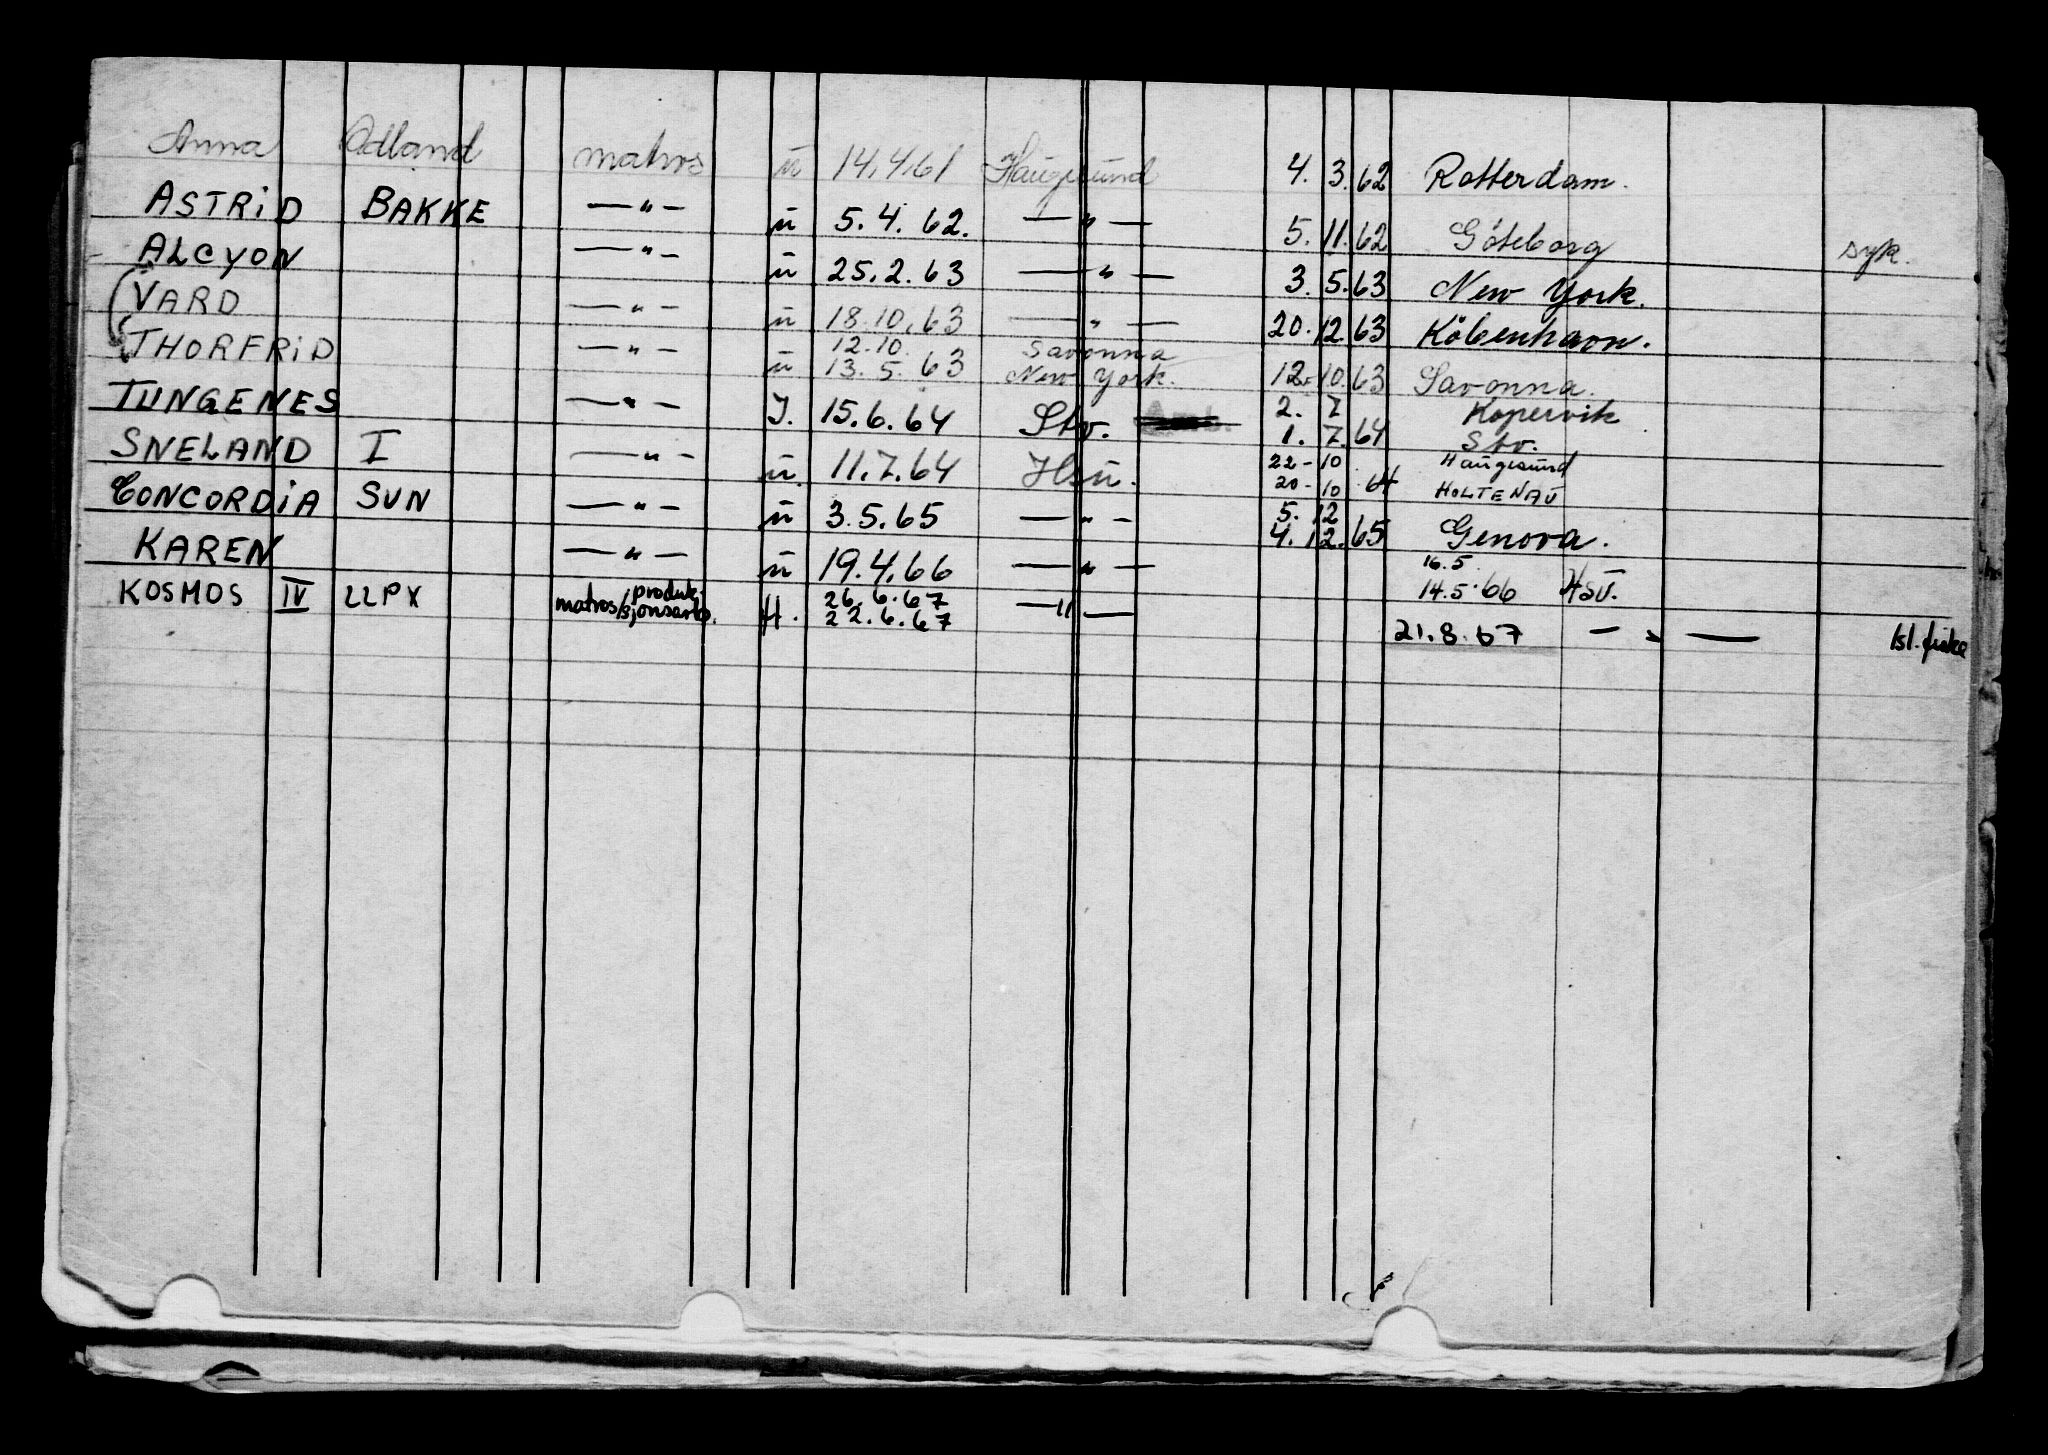 Anna Odland matros ü 14.4.61 Haugesund 4. 3. 62 Rotterdam.
ASTRID BAKKE — " — ü 5. 4. 62. — " — 5. 11. 62 Göteborg syk.
ALCYON — " — ü 25. 2. 63 — " — 3. 5. 63 New York.
VARD — " — ü 18.10.63 — " — 20. 12. 63 Köbenhavn.
12.10. Savonna
THORFRID — " — ü 13. 5. 63 New York. 12. 10. 63 Savonna.
2. 7 Kopervik
TUNGENES — " — J. 15. 6. 64 Stv. 1. 7. 64 Stv.
22 - 10 Haugesund
SNELAND I — " — ü. 11. 7. 64 Hsu. 20 - 10 64 HOLTENAU
5. 12
CONCORDIA SUN — " — ü 3. 5. 65 — " — 4. 12. 65 Genova.
16.5.
KAREN — " — ü 19. 4. 66 — " — 14.5.66 HSU.
produk. 26. 6. 67
KOSMOS IV LLPX matros/sjonsarb. H. 22. 6. 67 — " — 21. 8. 67 — " — Isl. fiske